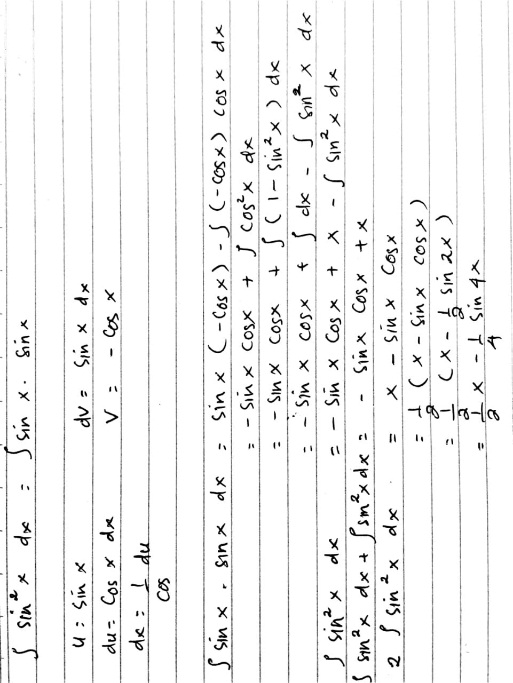 ∫ sin² x dx = ∫ sin x . sin x
u = sin x dv = sin x dx
du = cos x dx v = - cos x
dx = 1/cos du
∫ sin x . sin x dx = sin x (-cos x) - ∫ (-cos x) cos x dx
= - sin x cos x + ∫ cos² x dx
= - sin x cos x + ∫ (1 - sin² x) dx
= - sin x cos x + ∫ dx - ∫ sin² x dx
∫ sin² x dx = - sin x cos x + x - ∫ sin² x dx
∫ sin² x dx + ∫ sin² x dx = - sin x cos x + x
2 ∫ sin² x dx = x - sin x cos x
= 1/2 (x - sin x cos x)
= 1/2 (x - 1/2 sin 2x)
= 1/2 x - 1/4 sin 4x